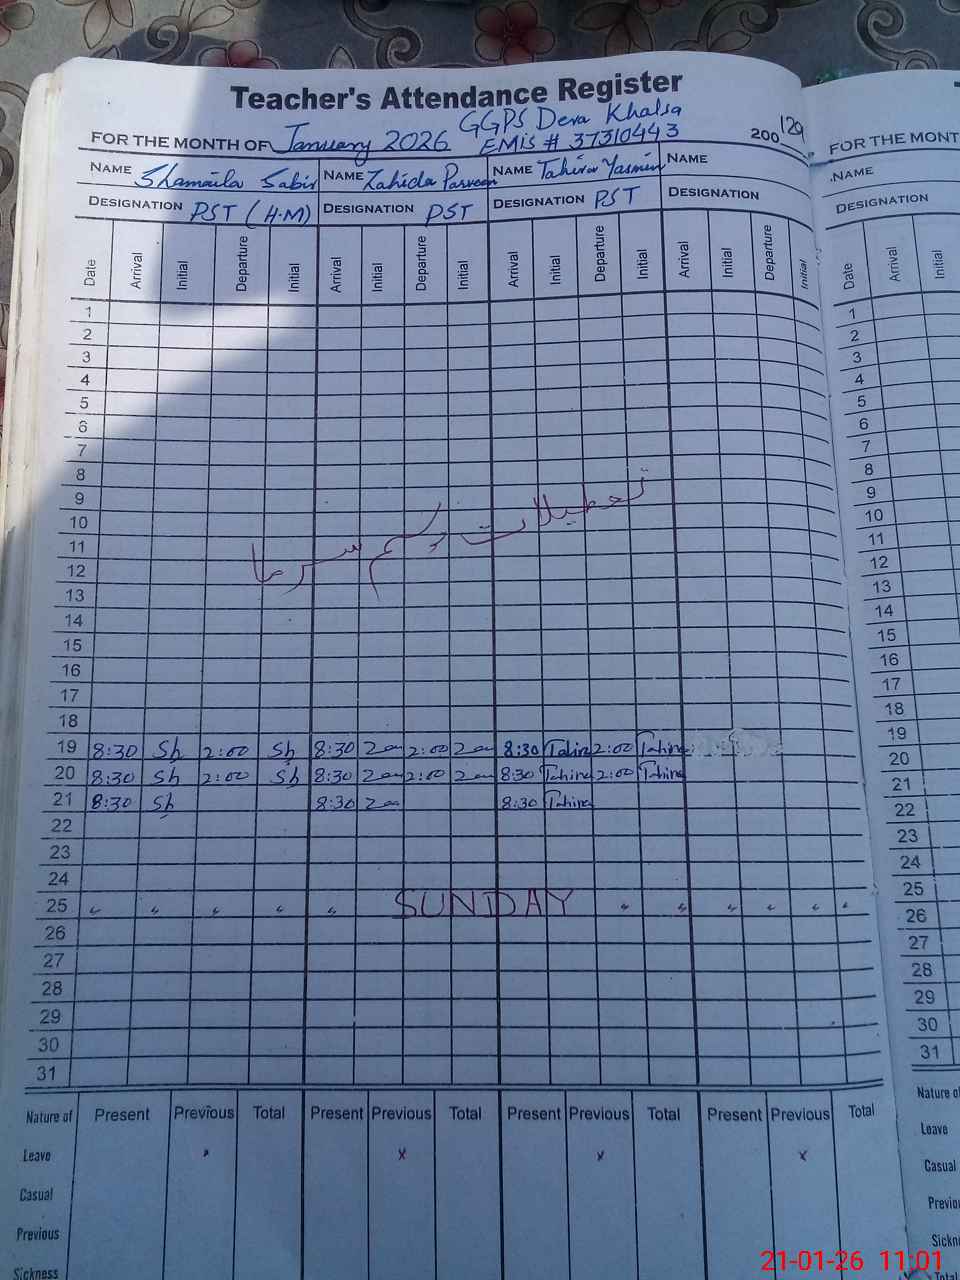 Teacher's Attendance Register
GGPS Deva Khalsa
FOR THE MONTH OF January 2026 EMIS # 37310443 200 129
NAME Shamaila Sabir NAME Zahida Parveen NAME Tahira Yasmin NAME
DESIGNATION PST (H.M) DESIGNATION PST DESIGNATION PST
Date Arrival Initial Departure Initial Arrival Initial Departure Initial Arrival Initial Departure Initial Arrival Initial Departure Initial
1
2
3
4
5
6
7
8
9
10
تعطیلات موسم سرما
11
12
13
14
15
16
17
18
19 8:30 Sh 2:00 Sh 8:30 Zan 2:00 Zan 8:30 Tahira 2:00 Tahira
20 8:30 Sh 2:00 Sh 8:30 Zan 2:00 Zan 8:30 Tahira 2:00 Tahira
21 8:30 Sh 8:30 Zan 8:30 Tahira
22
23
24
25 " " " " " SUNDAY " " " " " "
26
27
28
29
30
31
Nature of Present Previous Total Present Previous Total Present Previous Total Present Previous Total
Leave x x x
Casual
Previous
Sickness
FOR THE MONT
NAME
DESIGNATION
Date Arrival Initial
1
2
3
4
5
6
7
8
9
10
11
12
13
14
15
16
17
18
19
20
21
22
23
24
25
26
27
28
29
30
31
Nature of
Leave
Casual
Previo
Sickn
Total
21-01-26 11:01